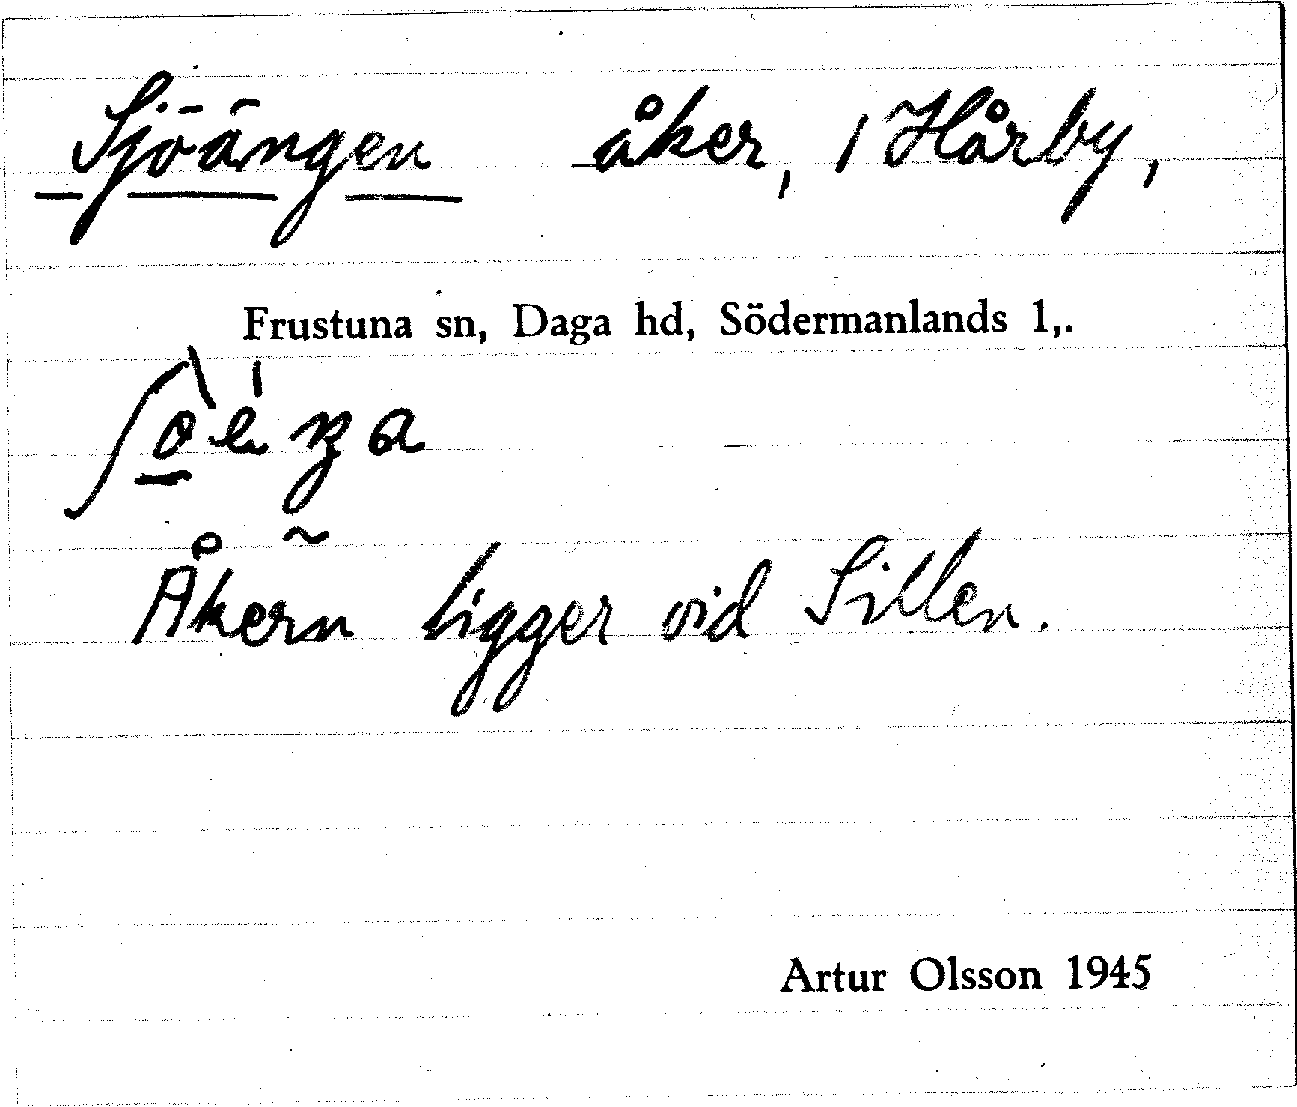 Sjöängen åker, 1 Hårby,
Frustuna sn, Daga hd, Södermanlands l,.
Åkern ligger vid Sillen.
Artur Olsson 1945